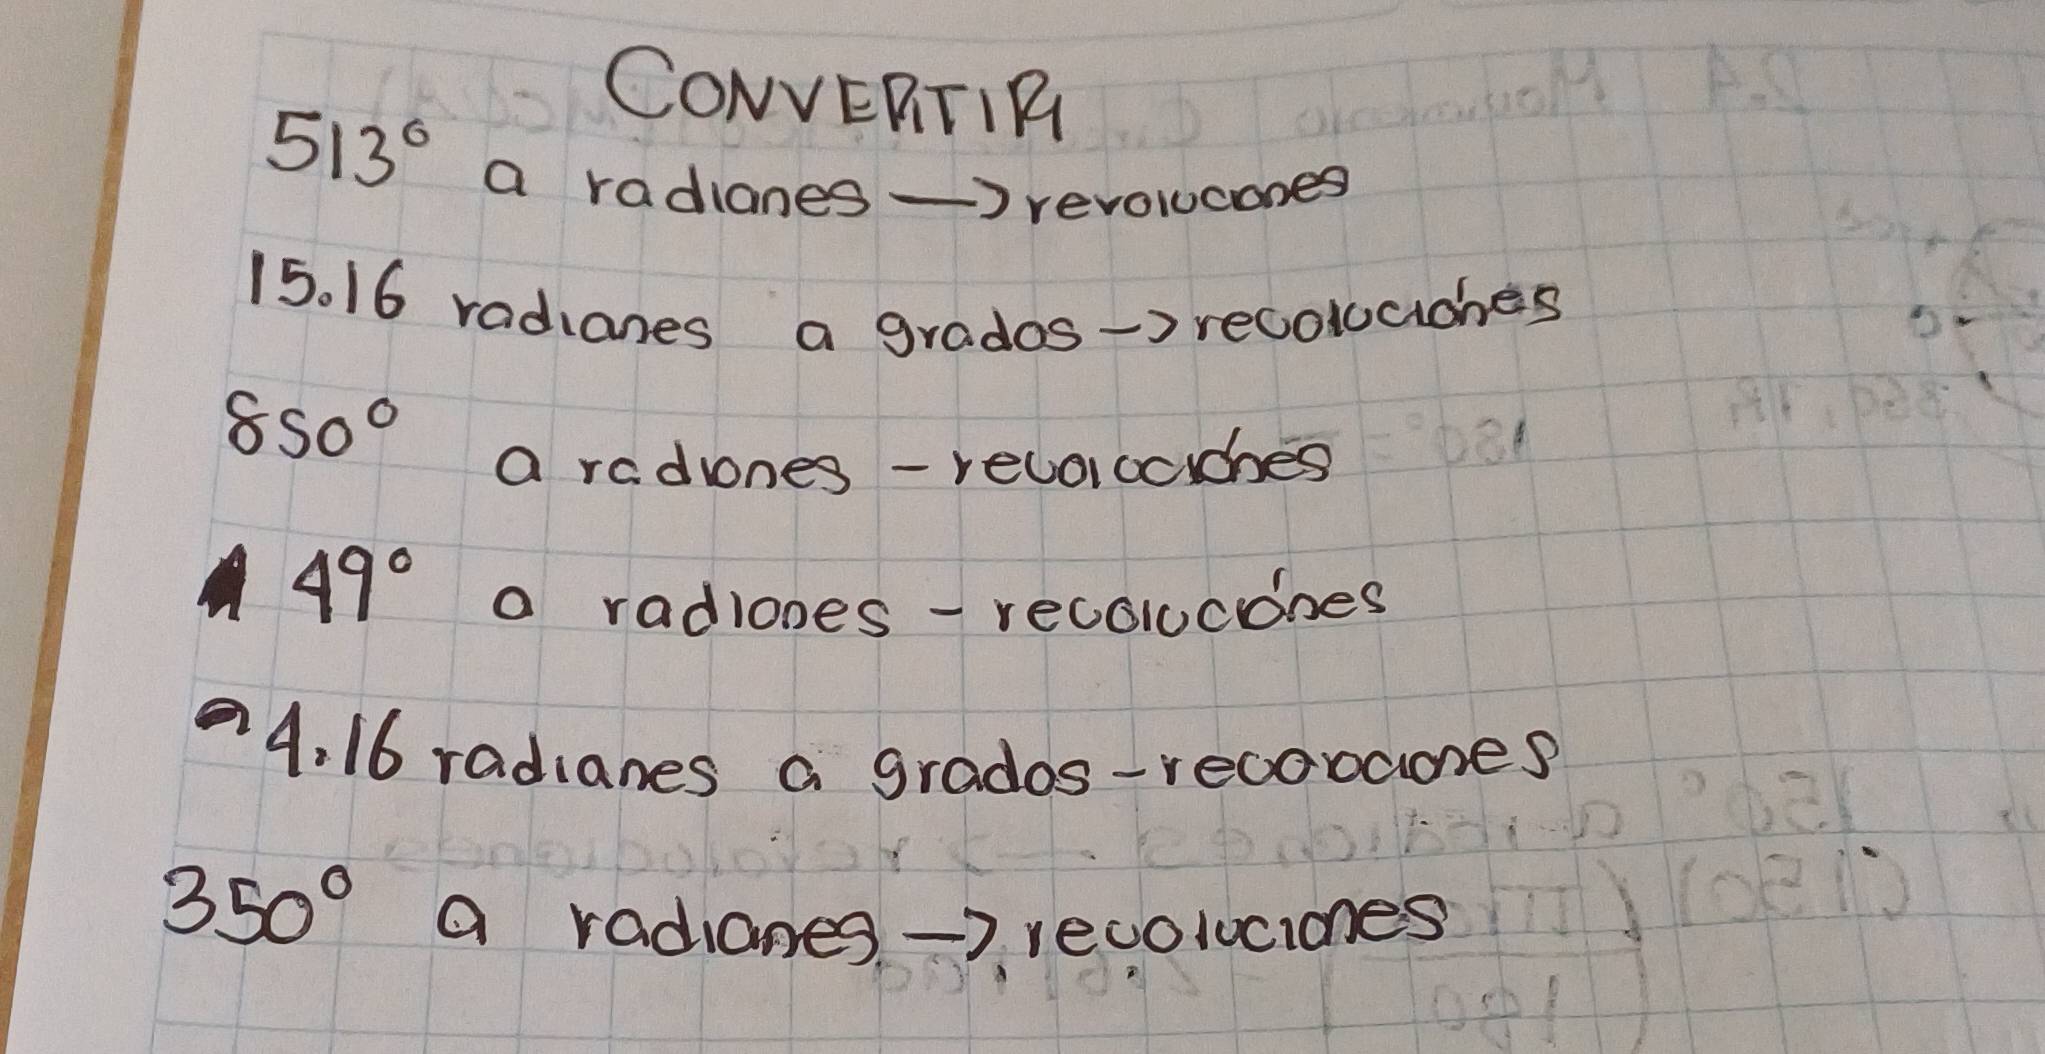 CONVERTIR
513° a radianes → revoluciones
15.16 radianes a grados → revoluciones
850° a radianes - revoluciones
49° a radianes - revoluciones
4.16 radianes a grados - revoluciones
350° a radianes → revoluciones